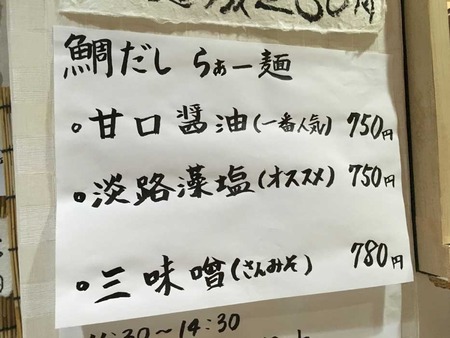 鯛だし らぁー麺
。甘口醤油(一番人気) 750円
。淡路藻塩(オススメ) 750円
。三味噌(さんみそ) 780円
11:30〜14:30